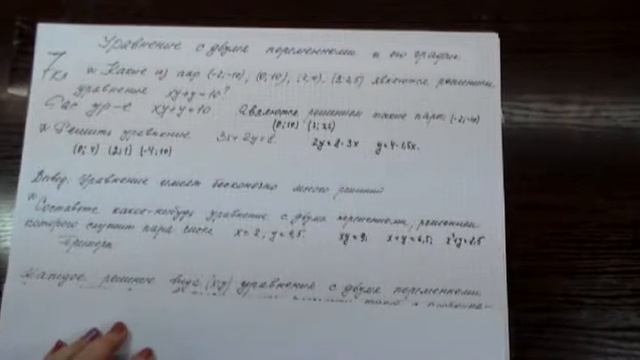 Уравнение с двумя переменными и его график.
7 кл № Какие из пар (-2;-10), (0;10), (2;4), (3;2,5) являются решением
уравнения xy+y=10?
ур-е xy+y=10 являются решением такие пары (-2;-10)
(0;10) (3;2,5)
№ Решить уравнение 3x+2y=8 2y=8-3x y=4-1,5x.
(0;4) (2;1) (-4;10)
Вывод. Уравнение имеет бесконечно много решений
№ Составьте какое-нибудь уравнение с двумя переменными, решением
которого служит пара чисел x=2, y=4,5. xy=9; x+y=6,5;
Каждое решение (xy) уравнения с двумя переменными